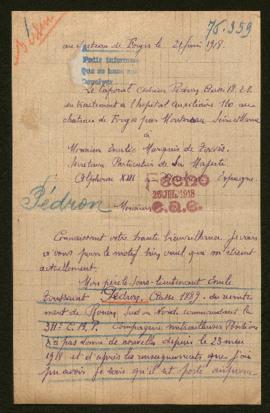 75.959
au château de Forges le 21 juin 1918.
Petit informe
Que se hace
Le Caporal Pédron classe 18.
en traitement à l'hôpital Auxiliaire 110 au
château de Forges par Montereau Seine et Marne
à
Monsieur Emilio Marquis de Torres,
Secrétaire Particulier de Sa Majesté
Alphonse XIII Espagne.
Fecho
26 JUL 1918
Pédron Monsieur
Connaissant votre haute bienveillance je viens
à vous pour le motif bien cruel qui m'étreint
actuellement.
Mon père le sous-Lieutenant Emile
Toussaint Pédron, classe 1887. du recrute
ment de Rouen Sud et Nord commandant la
Compagnie mitrailleuses Position
n'a pas donné de nouvelles depuis le 23 mai
1918 et d'après les renseignements que j'ai
pu avoir je sais qu'il est porté